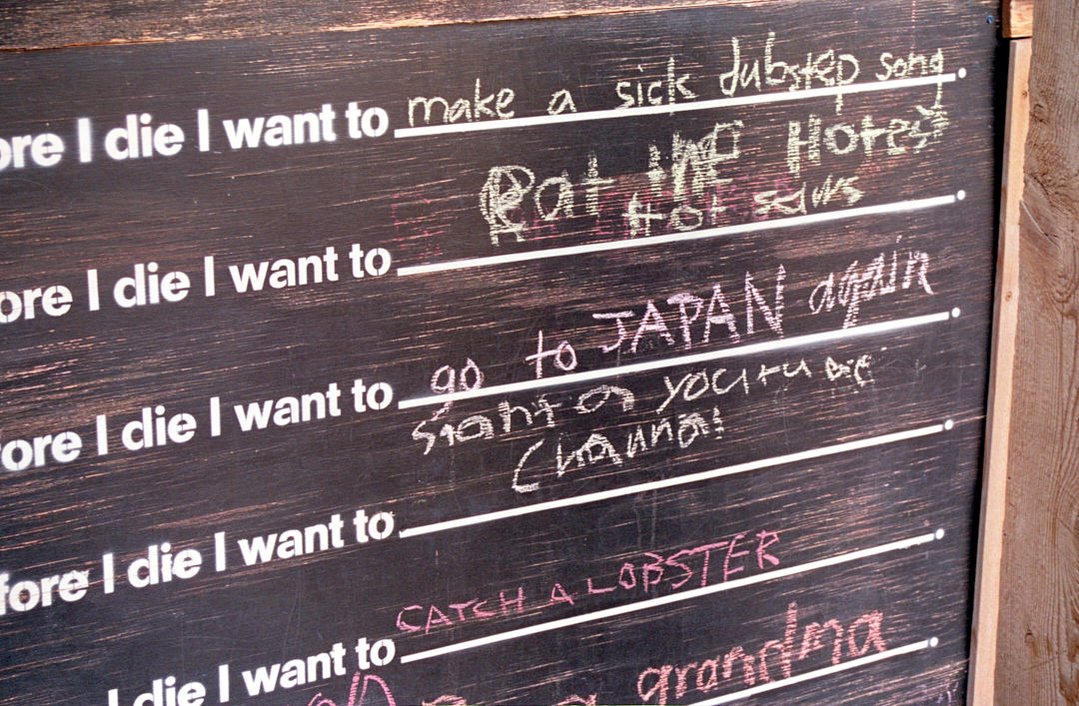 ore I die I want to make a sick dubstep song.
Eat the Hotest
Hot saws
ore I die I want to
ore I die I want to go to JAPAN again
Start a
fore I die I want to
I die I want to CATCH A LOBSTER
a grandma